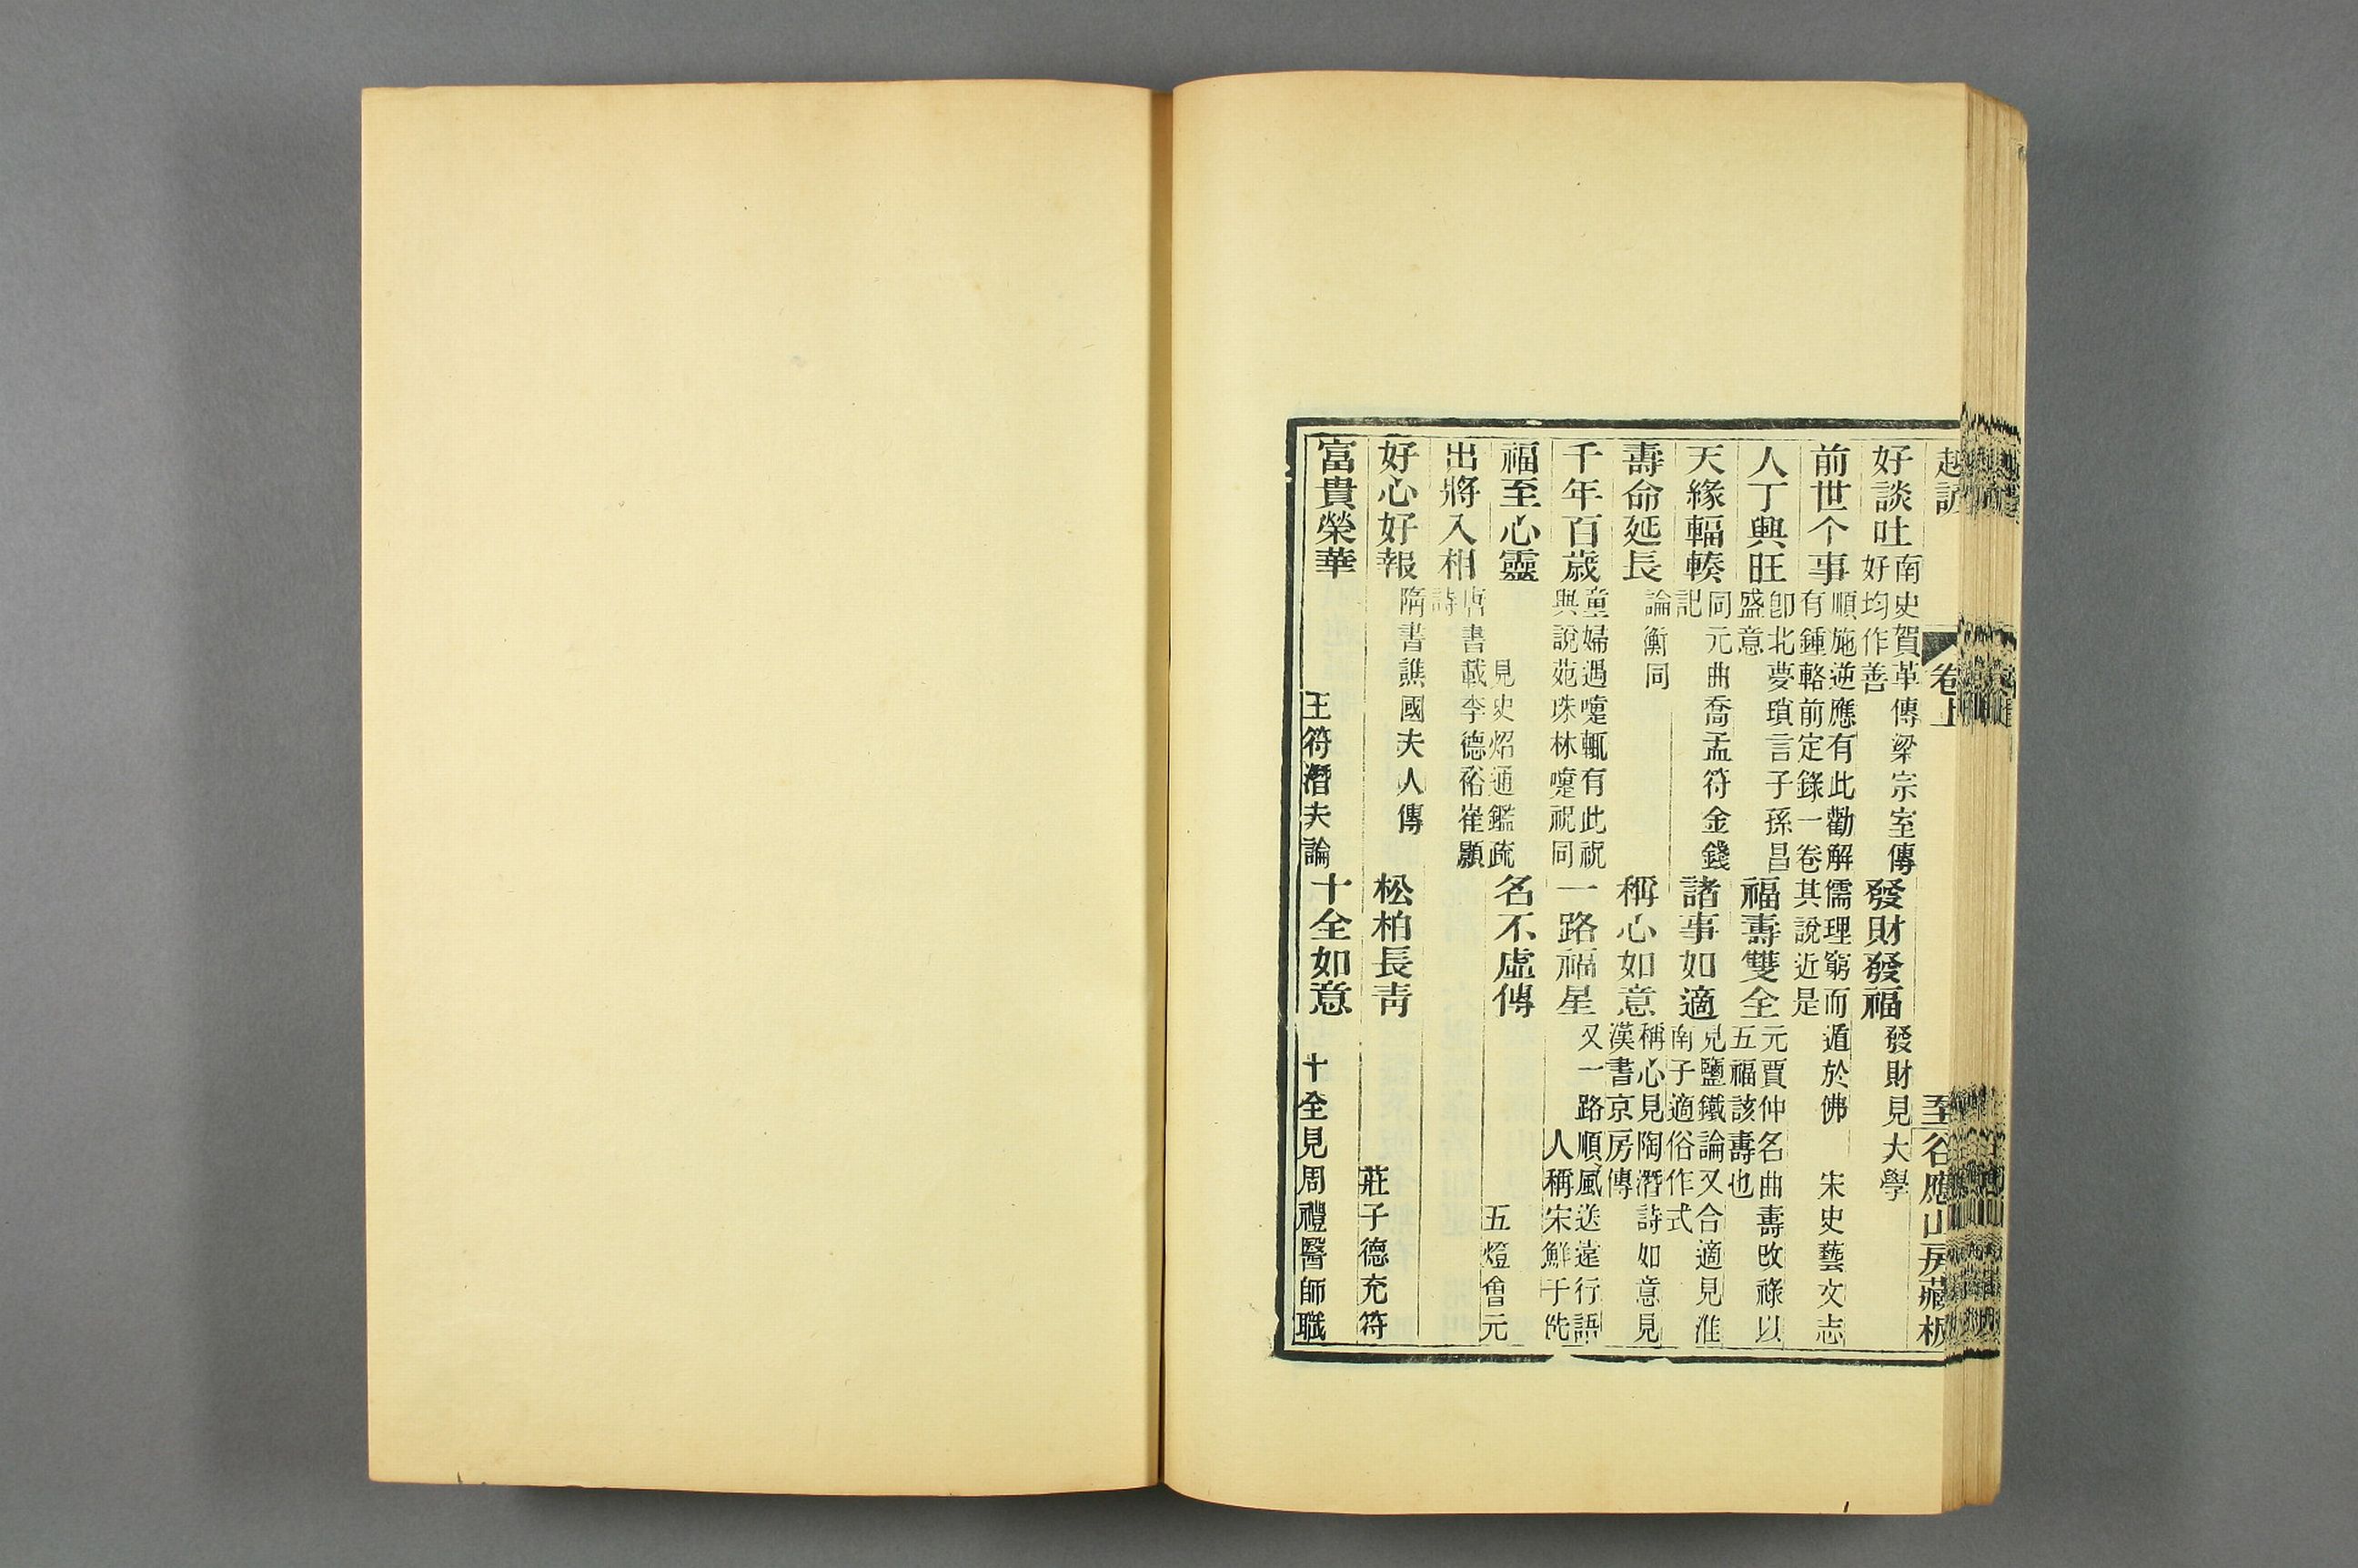 越諺 卷上 至 谷應山房藏板
好談吐 南史賀革傳梁宗室傳
好均作善
發財發福 發財見大學
前世个事 順施逆應有此勸解儒理窮而遁於佛 宋史藝文志
有鍾輅前定錄一卷其說近是
人丁興旺 卽北夢瑣言子孫昌
盛意
福壽雙全 元賈仲名曲壽攺祿以
五福該壽也
天緣輻輳 同元曲喬孟符金錢
記
諸事如適 見鹽鐵論又合適見淮
南子適俗作式
壽命延長 論衡同
稱心如意 稱心見陶潛詩如意見
漢書京房傳
千年百歲 童婦遇嚏輒有此祝
與說苑珠林嚏祝同
一路福星 又一路順風送遠行語
人稱宋鮮于侁
福至心靈 見史炤通鑑疏
名不虛傳 五燈會元
出將入相 唐書載李德裕崔顥
詩
好心好報 隋書譙國夫人傳
松柏長青 莊子德充符
富貴榮華 王符潛夫論
十全如意 十全見周禮醫師職